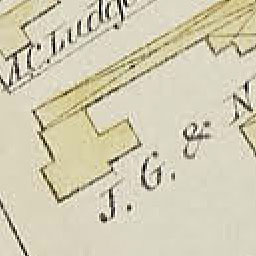 Mc. Ludge
J. G. & N